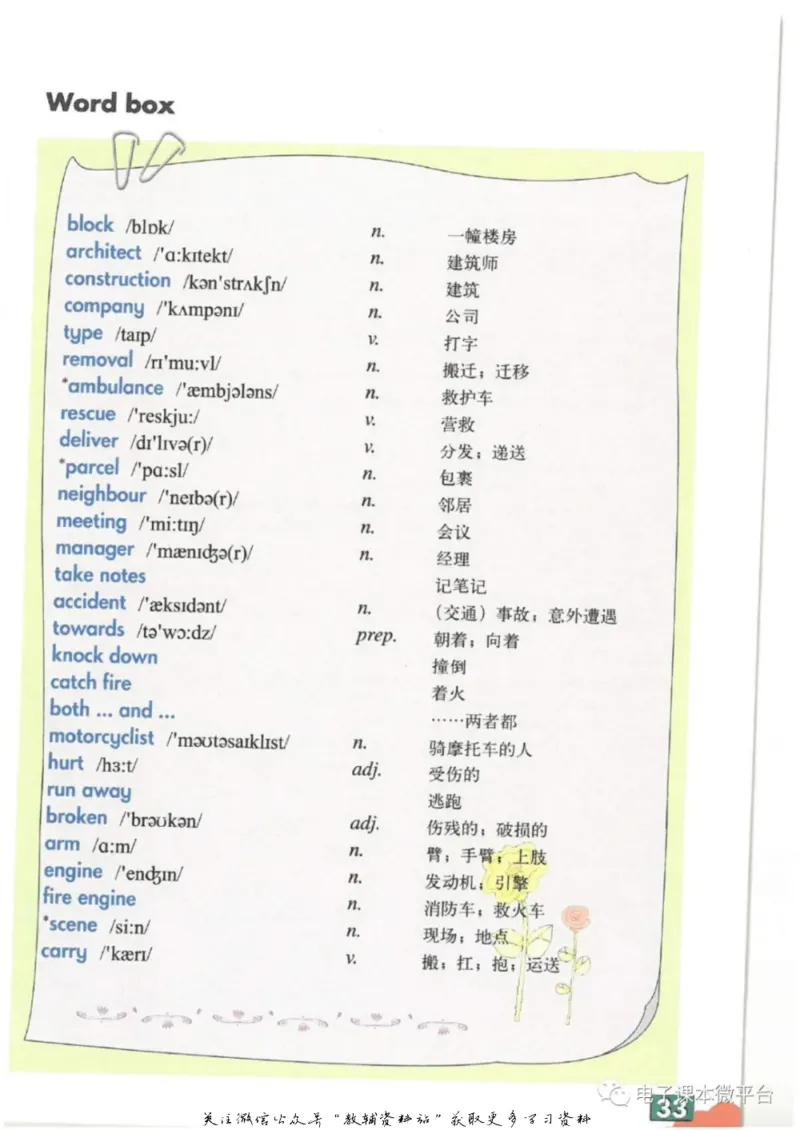 Word box
block /blɒk/ n. 一幢楼房
architect /'ɑ:kɪtekt/ n. 建筑师
construction /kən'strʌkʃn/ n. 建筑
company /'kʌmpənɪ/ n. 公司
type /taɪp/ v. 打字
removal /rɪ'mu:vl/ n. 搬迁；迁移
*ambulance /'æmbjələns/ n. 救护车
rescue /'reskju:/ v. 营救
deliver /dɪ'lɪvə(r)/ v. 分发；递送
*parcel /'pɑ:sl/ n. 包裹
neighbour /'neɪbə(r)/ n. 邻居
meeting /'mi:tɪŋ/ n. 会议
manager /'mænɪʤə(r)/ n. 经理
take notes 记笔记
accident /'æksɪdənt/ n. （交通）事故；意外遭遇
towards /tə'wɔ:dz/ prep. 朝着；向着
knock down 撞倒
catch fire 着火
both ... and ... ……两者都
motorcyclist /'məʊtəsaɪklɪst/ n. 骑摩托车的人
hurt /hɜ:t/ adj. 受伤的
run away 逃跑
broken /'brəʊkən/ adj. 伤残的；破损的
arm /ɑ:m/ n. 臂；手臂；上肢
engine /'enʤɪn/ n. 发动机；引擎
fire engine n. 消防车；救火车
*scene /si:n/ n. 现场；地点
carry /'kærɪ/ v. 搬；扛；抱；运送
电子课本微平台
33
关注微信公众号"教辅资料站"获取更多学习资料